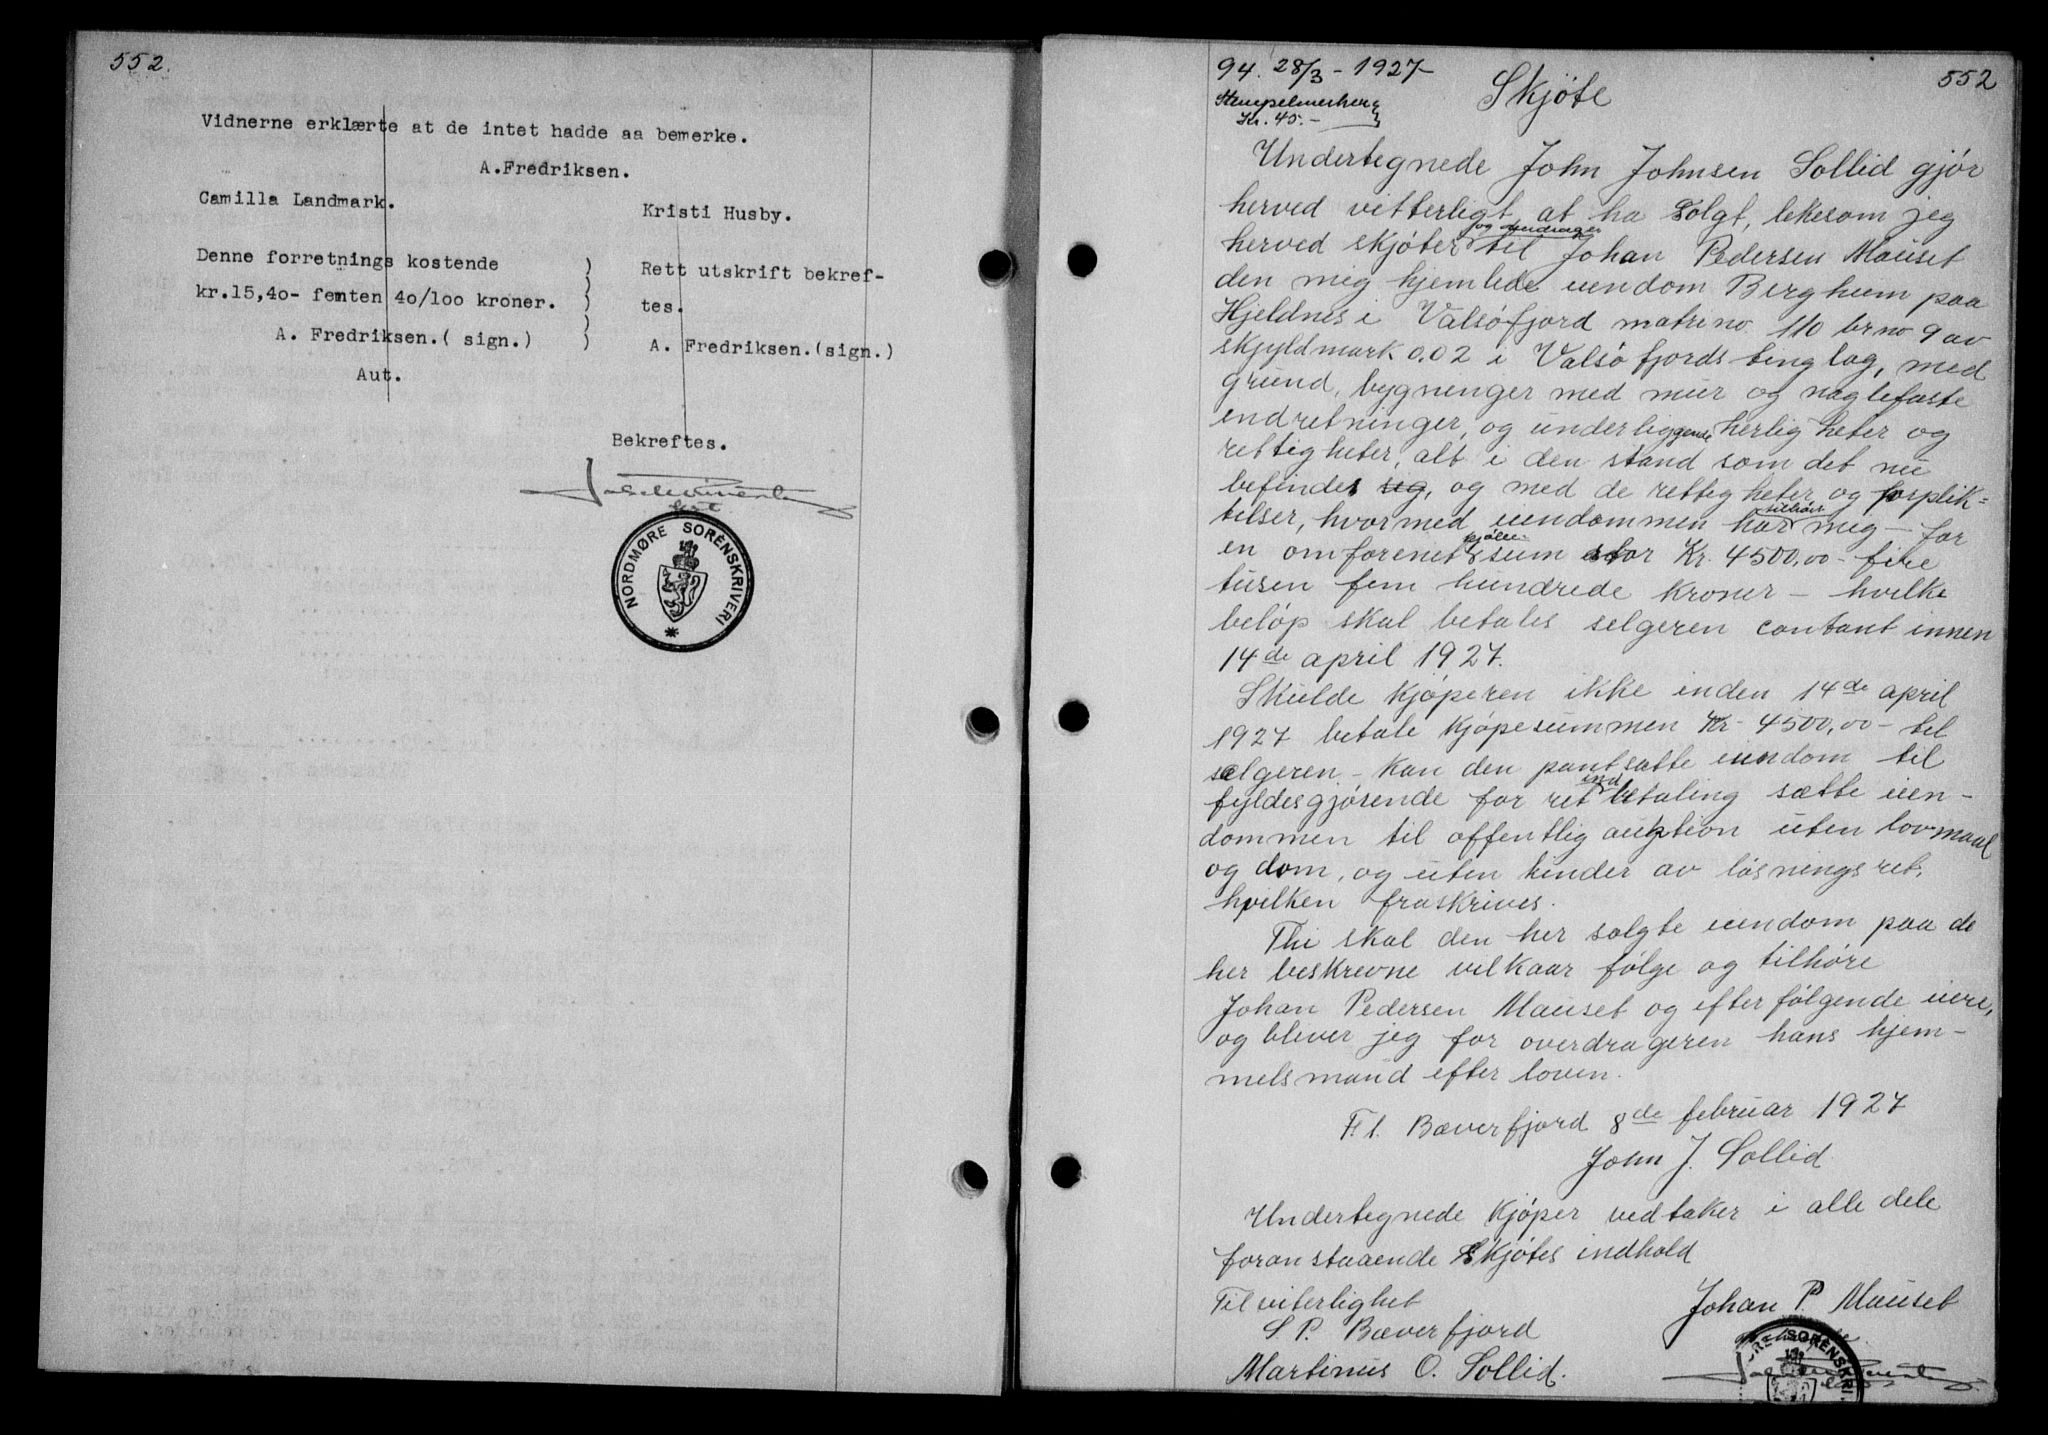 552.
Vidnerne erklærte at de intet hadde aa bemerke.
A.Fredriksen.
Camilla Landmark.
Kristi Husby.
Denne forretnings kostende )
kr.15,40- femten 40/100 kroner. )
A. Fredriksen.( sign.) )
Aut.
Rett utskrift bekref-
tes.
A. Fredriksen.(sign.)
Bekreftes.
NORDMØRE SORENSKRIVERI
94. 28/3 - 1927
552
Stempelmerker
Kr. 45.-
Skjøte
Undertegnede John Johnsen Sollid gjør
herved vitterligt, at ha solgt, likesom jeg
herved skjøter og til Johan Pedersen Mauset
den mig hjemlede eiendom Bergheim paa
Hjeldnes i Valsøfjord matr.no 110 br.no 9 av
skyldmark 0,02 i Valsøfjords tinglag, med
grund, bygninger med mur og naglefaste
indretninger, og underliggende herligheter og
rettigheter, alt i den stand som det nu
befindes sig, og med de rettigheter og forplik-
telser, hvormed eiendommen har tilhørt mig - for
en omforenet kjøbe- sum stor Kr. 4500,00 - fire
tusen fem hundrede kroner - hvilke
beløp skal betales selgeren contant innen
14de april 1927.
Skulde kjøperen ikke inden 14de april
1927 betale kjøpesummen Kr 4500,00 - til
selgeren - kan den pantsatte eiendom til
fyldesgjørende for ret ind betaling sætte eien-
dommen til offentlig auktion uten lovmaal
og dom, og uten hinder av løsningsret,
hvilken fraskrives.
Thi skal den her solgte eiendom paa de
her beskrevne vilkaar følge og tilhøre
Johan Pedersen Mauset og efterfølgende eiere,
og blever jeg for overdrageren hans hjem-
melsmand efter loven.
F.t. Bæverfjord 8de februar 1927
John J. Sollid
Undertegnede kjøper vedtaker i alle dele
foranstaaende skjøtes indhold
Johan P. Mauset
Til viterlighet
S P. Bæverfjord
Martinus O. Sollid.
SORENSKRI